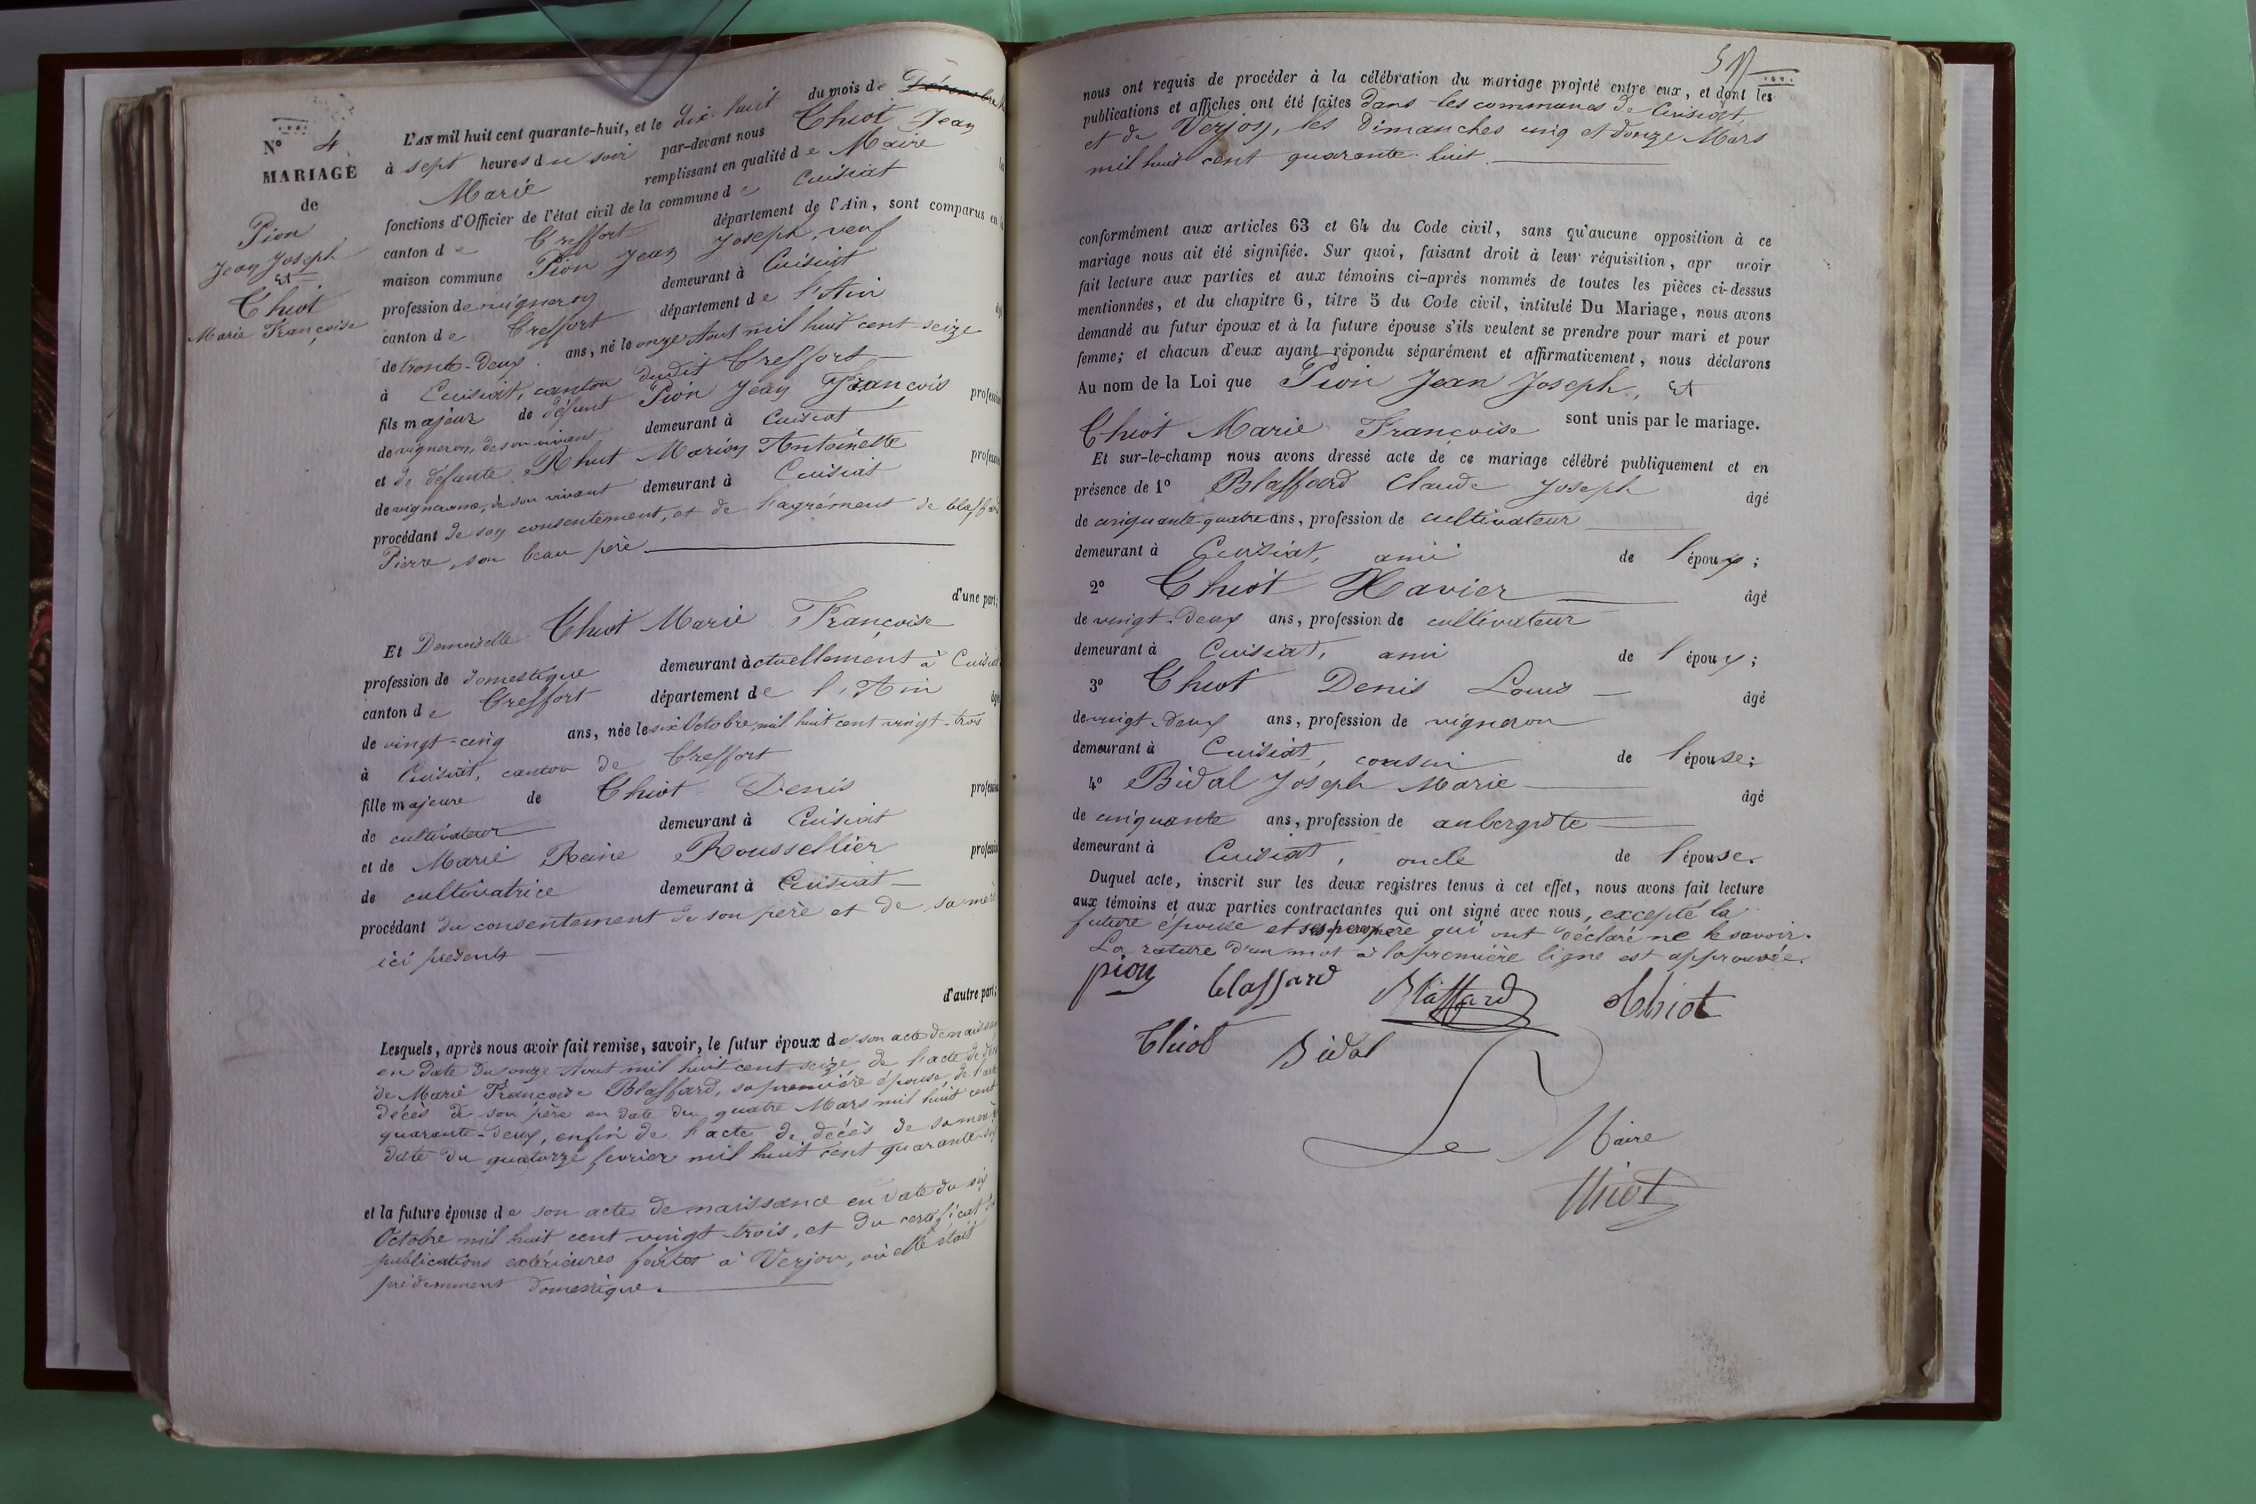 N° 4
MARIAGE
de
Pion
Jean Joseph
Et
Thiot
Marie Françoise
L'AN mil huit cent quarante-huit, et le dix huit du mois de
à sept heures du soir par-devant nous Thiot Jean
Marie remplissant en qualité de Maire
fonctions d'Officier de l'état civil de la commune de Cuisiat
canton de Treffort département de l'Ain, sont comparus en
maison commune Pion Jean Joseph, veuf
profession de vigneron demeurant à Cuisiat
canton de Treffort département de l'Ain
de trente-deux ans, né le onze Aout mil huit cent seize
à Cuisiat, canton dudit Treffort
fils majeur de défunt Pion Jean François profession
de vigneron, de son vivant demeurant à Cuisiat
et de défunte Rhut Marion Antoinette profession
de vigneronne, de son vivant demeurant à Cuisiat
procédant de son consentement, et de l'agrément de blaffard
Pierre, son beau père
d'une part;
Et Demoiselle Thiot Marie Françoise
profession de domestique demeurant actuellement à Cuisiat
canton de Treffort département de l'Ain âgé
de vingt-cinq ans, née le six Octobre mil huit cent vingt-trois
à Cuisiat, canton de Treffort
fille majeure de Thiot Denis profession
de cultivateur demeurant à Cuisiat
et de Marie Reine Roussellier profession
de cultivatrice demeurant à Cuisiat
procédant du consentement de son père et de sa mère
ici présents
d'autre part;
Lesquels, après nous avoir fait remise, savoir, le futur époux de son acte de naissance
en date du onze Aout mil huit cent seize, de l'acte de
de Marie Françoise Blaffard, sa première épouse, de l'acte
décès de son père en date du quatre Mars mil huit cent
quarante-deux, enfin de l'acte de décès de sa mère
date du quatorze fevrier mil huit cent quarante
et la future épouse de son acte de naissance en date du six
Octobre mil huit cent vingt-trois, et du certificat
publications extérieures faites à Verjon, où elle était
précédemment domestique.
nous ont requis de procéder à la célébration du mariage projeté entre eux, et dont les
publications et affiches ont été faites dans les communes de Cuisiat,
et de Verjon, les Dimanches cinq et douze Mars
mil huit cent quarante-huit.
conformément aux articles 63 et 64 du Code civil, sans qu'aucune opposition à ce
mariage nous ait été signifiée. Sur quoi, faisant droit à leur réquisition, apr avoir
fait lecture aux parties et aux témoins ci-après nommés de toutes les pièces ci-dessus
mentionnées, et du chapitre 6, titre 5 du Code civil, intitulé Du Mariage, nous avons
demandé au futur époux et à la future épouse s'ils veulent se prendre pour mari et pour
femme; et chacun d'eux ayant répondu séparément et affirmativement, nous déclarons
Au nom de la Loi que Pion Jean Joseph, Et
Thiot Marie Françoise sont unis par le mariage.
Et sur-le-champ nous avons dressé acte de ce mariage célébré publiquement et en
présence de 1° Blaffard Claude Joseph âgé
de cinquante-quatre ans, profession de cultivateur
demeurant à Cuisiat, ami de l'époux;
2° Thiot Xavier âgé
de vingt-deux ans, profession de cultivateur
demeurant à Cuisiat, ami de l'époux;
3° Thiot Denis Louis âgé
de vingt-deux ans, profession de vigneron
demeurant à Cuisiat, cousin de l'épouse;
4° Bidal Joseph Marie âgé
de cinquante ans, profession de aubergiste
demeurant à Cuisiat, oncle de l'épouse.
Duquel acte, inscrit sur les deux registres tenus à cet effet, nous avons fait lecture
aux témoins et aux parties contractantes qui ont signé avec nous, excepté la
future épouse et ses père qui ont déclaré ne le savoir.
La rature d'un mot à la première ligne est approuvée.
pion blaffard Blaffard Thiot
Thiot Bidal
Le Maire
Thiot